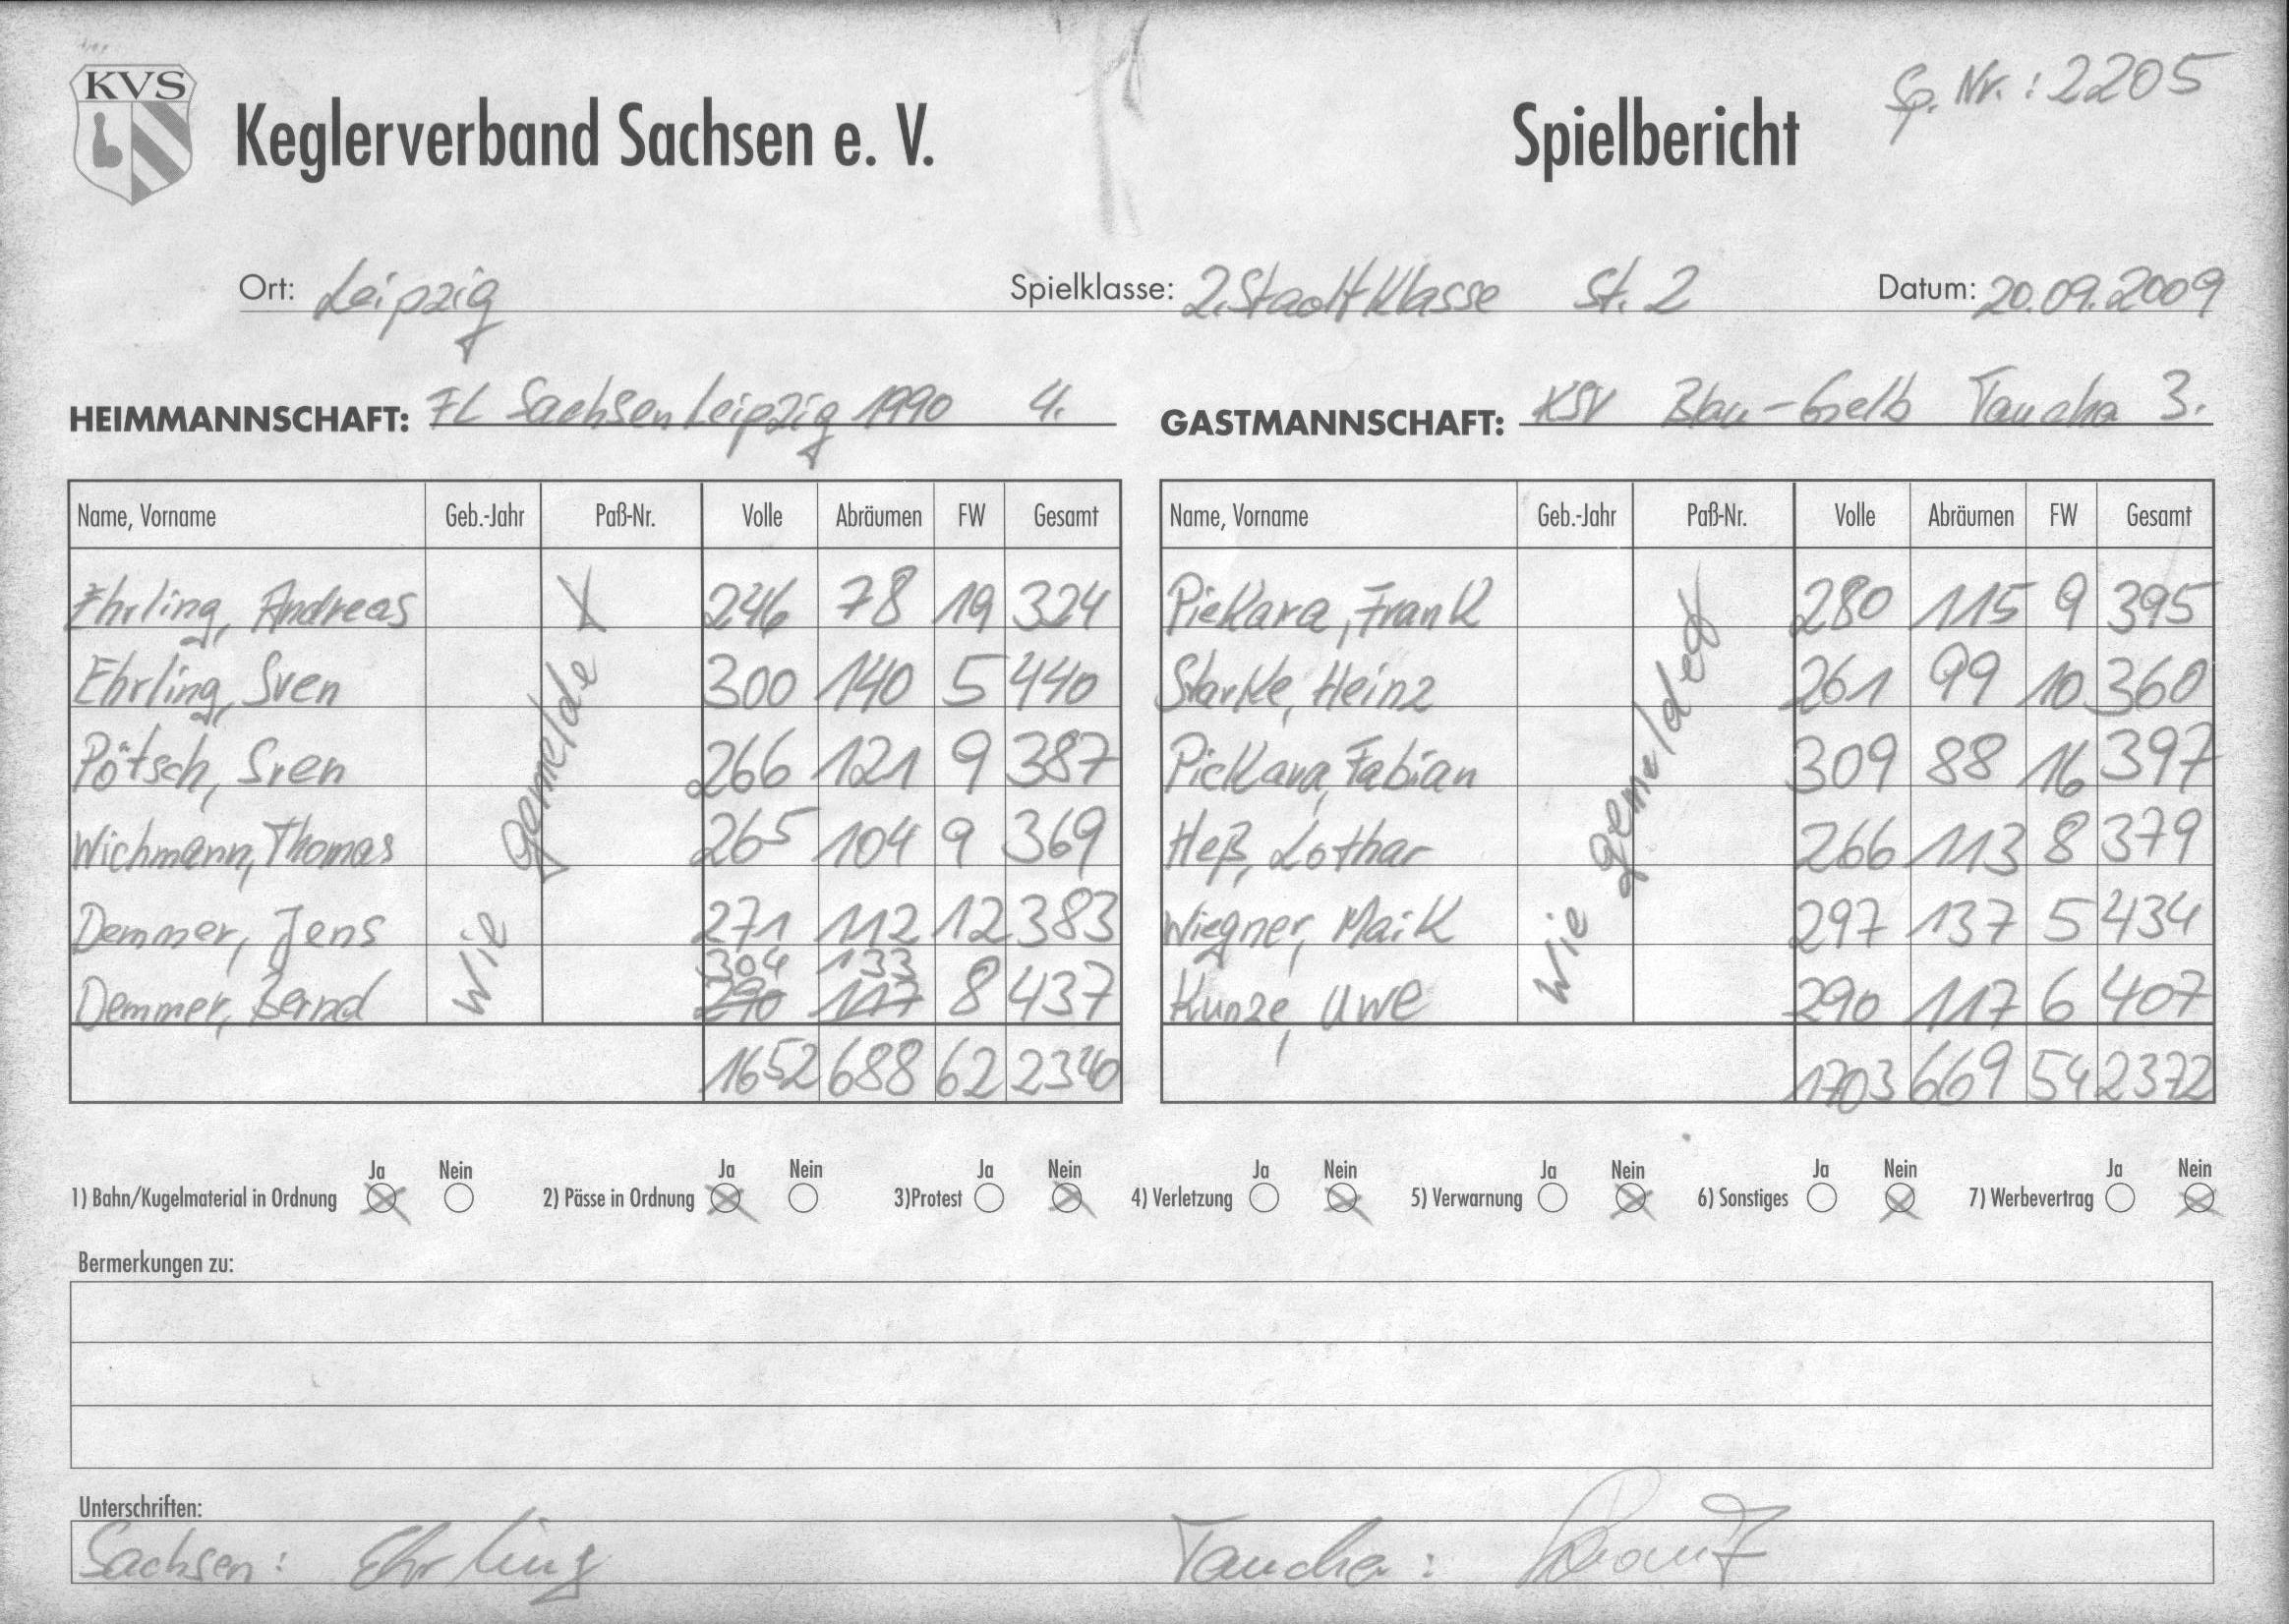 KVS
Keglerverband Sachsen e. V. Spielbericht Sp. Nr.: 2205
Ort: Leipzig Spielklasse: 2. Stadtklasse St. 2 Datum: 20.09.2009
HEIMMANNSCHAFT: FC Sachsen Leipzig 1990 4. GASTMANNSCHAFT: KSV Blau-Gelb Taucha 3.
Name, Vorname Geb.-Jahr Paß-Nr. Volle Abräumen FW Gesamt Name, Vorname Geb.-Jahr Paß-Nr. Volle Abräumen FW Gesamt
Ehrling, Andreas 246 78 19 324 Piekara, Frank 280 115 9 395
Ehrling, Sven 300 140 5 440 Starke, Heinz 261 99 10 360
Pötsch, Sven 266 121 9 387 Piekara, Fabian 309 88 16 397
Wichmann, Thomas 265 104 9 369 Heß, Lothar 266 113 8 379
Demmer, Jens 271 112 12 383 Wiegner, Maik 297 137 5 434
304 133
Demmer, Bernd 290 117 8 437 Kunze, Uwe 290 117 6 407
wie gemeldet wie gemeldet
1652 688 62 2340 1703 669 54 2372
Ja Nein Ja Nein Ja Nein Ja Nein Ja Nein Ja Nein Ja Nein
1) Bahn/Kugelmaterial in Ordnung 2) Pässe in Ordnung 3)Protest 4) Verletzung 5) Verwarnung 6) Sonstiges 7) Werbevertrag
Bermerkungen zu:
Unterschriften:
Sachsen: Ehrling Taucha: